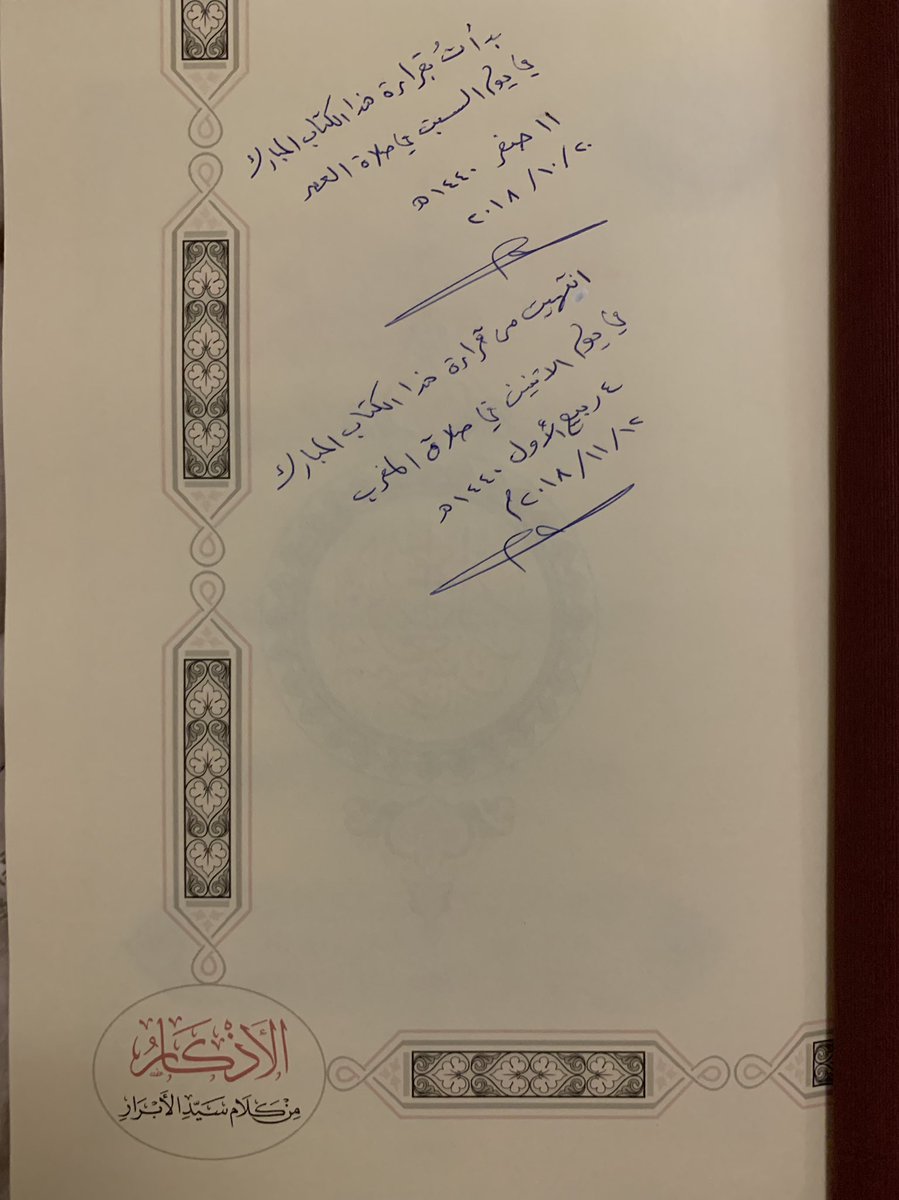 بدأت بقراءة هذا الكتاب المبارك
في يوم السبت في صلاة العصر
١١ صفر ١٤٤٠هـ
٢٠١٨/١٠/٢٠
انتهيت من قراءة هذا الكتاب المبارك
في يوم الاثنين في صلاة المغرب
٤ ربيع الأول ١٤٤٠هـ
٢٠١٨/١١/١٢م
الأَذْكَارُ
مِنْ كَلَامِ سَيِّدِ الأَبْرَارِ